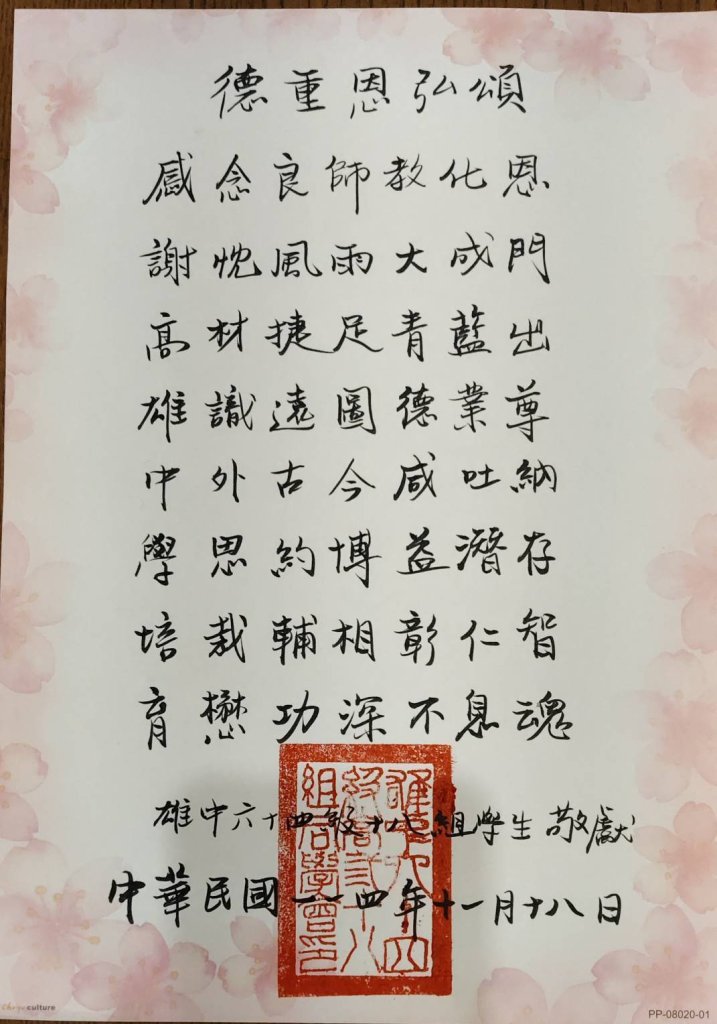 德重恩弘頌
感念良師教化恩
謝忱風雨大成門
高材捷足青藍出
雄識遠圖德業尊
中外古今咸吐納
學思約博益潛存
培栽輔相彰仁智
育懋功深不息魂
雄中六十四級十八組學生 敬獻
中華民國一一四年十一月十八日
culture
PP-08020-01